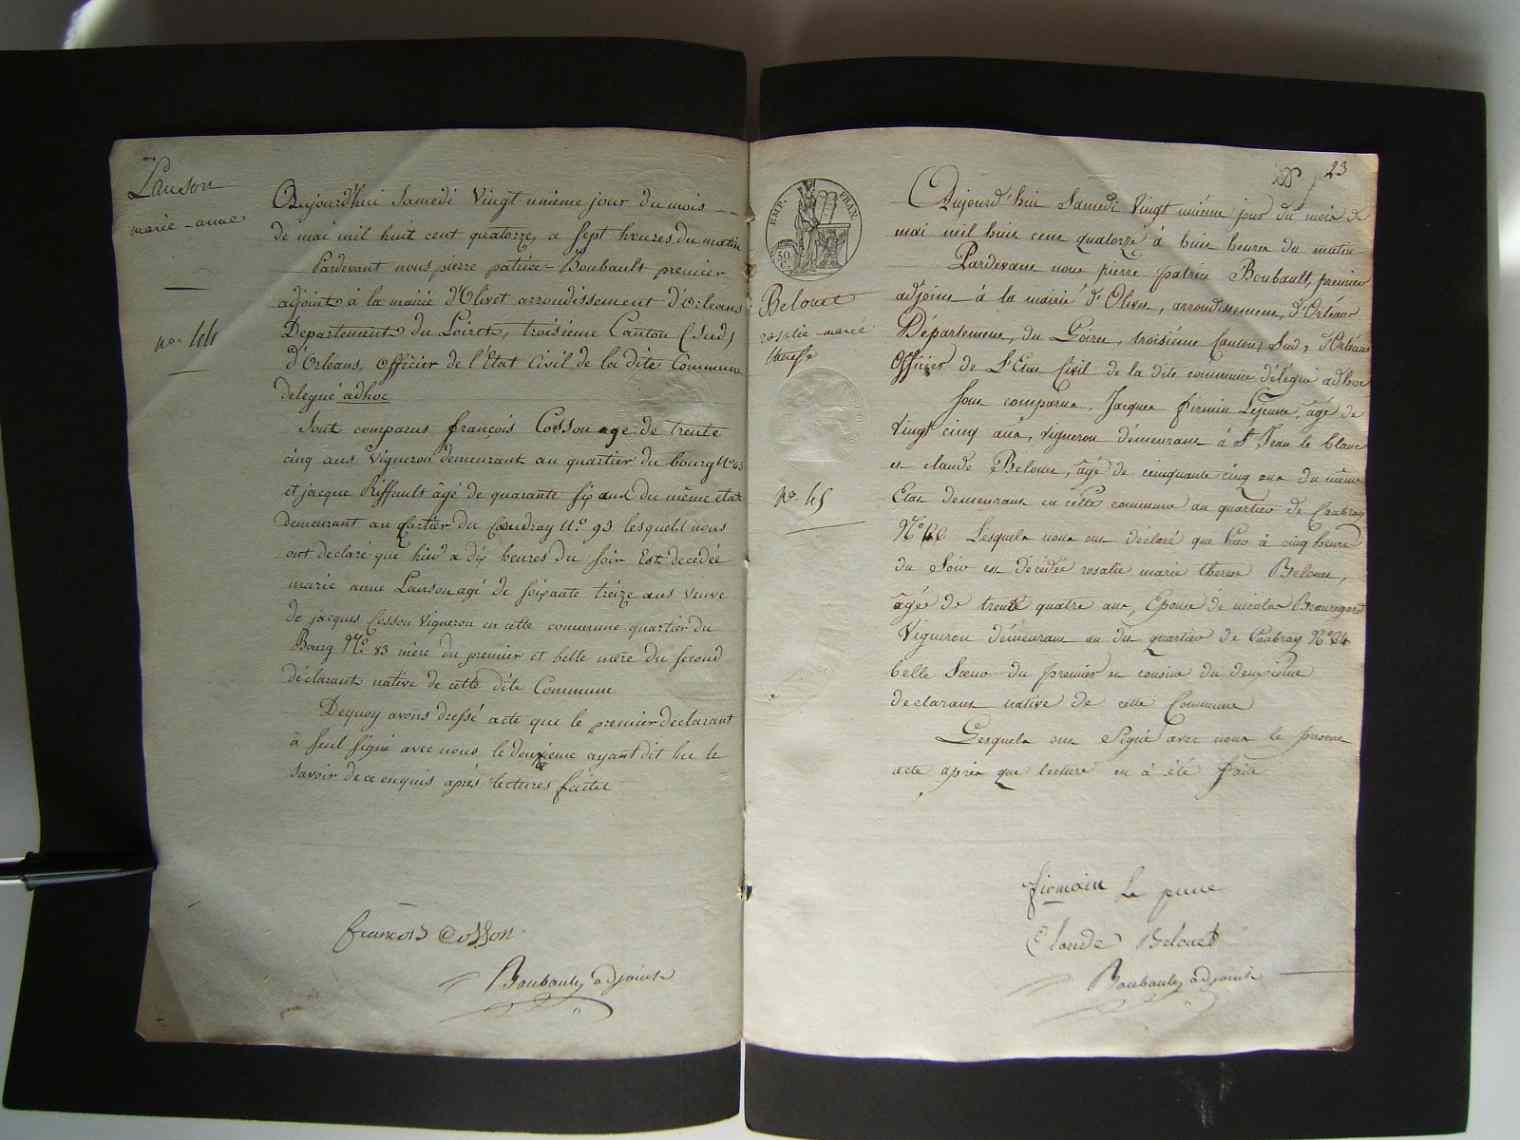 Lanson
marie-anne
no. 44
Aujourd'hui Samedi Vingt unieme jour du mois
de mai mil huit cent quatorze, a sept heures du matin
Pardevant nous pierre patrice Boubault premier
adjoint à la mairie d'Olivet arrondissement d'Orleans
Departement du Loiret, troisieme Canton (Sud)
d'Orléans, officier de l'Etat Civil de la dite Commune
delegué adhoc
Sont comparus françois Cosson age de trente
cinq ans Vigneron demeurant au quartier du bourg N.o
et jacque Riffault âgé de quarante six ans du même état
demeurant au Cartier du Coudray N.o 93 lesquels nous
ont declaré que hier a dix heures du soir Est decedée
marie anne Lanson agé de soixante treize ans veuve
de jacques Cosson Vigneron en cette commune quartier du
Bourg N.o 83 mere du premier et belle mere du second
déclarant native de cette dite Commune
Dequoy avons dressé acte que le premier declarant
à seul signé avec nous, le deuxieme ayant dit ne le
savoir de ce enquis après lectures faites
françois Cosson
Boubault adjoint
23
EMP. FRAN.
50 C.
Belouet
rosalie marie
therese
no. 45
Aujourd'hui Samedi Vingt unième jour du mois de
mai mil huit cent quatorze à huit heures du matin
Pardevant nous pierre patrice Boubault, premier
adjoint à la mairie d'Olivet, arrondissement, d'Orléans
Département, du Loiret, troisième Canton, Sud, d'Orléans
Officier de L'Etat Civil de la dite commune délégué adhoc
Sont comparus, Jacques firmin Lejeune, âgé de
Vingt cinq ans, vigneron démeurant à St Jean le blanc
et claude Belouet, âgé de cinquante cinq ans du même
Etat demeurant en cette commune au quartier de Caubray
N.o Lesquels nous ont déclaré que hier à cinq heures
du Soir est décédée rosalie marie therese Belouet,
âgé de trente quatre ans, Epouse de nicolas Beauregard
Vigneron démeurant au dit quartier de Caubray N.o 24
belle Sœur du premier et cousine du deuxième
declarant native de cette Commune
Lesquels ont Signé avec nous le présent
acte après que lecture en à été faite
firmain Le jeune
Claude Belouet
Boubault adjoint